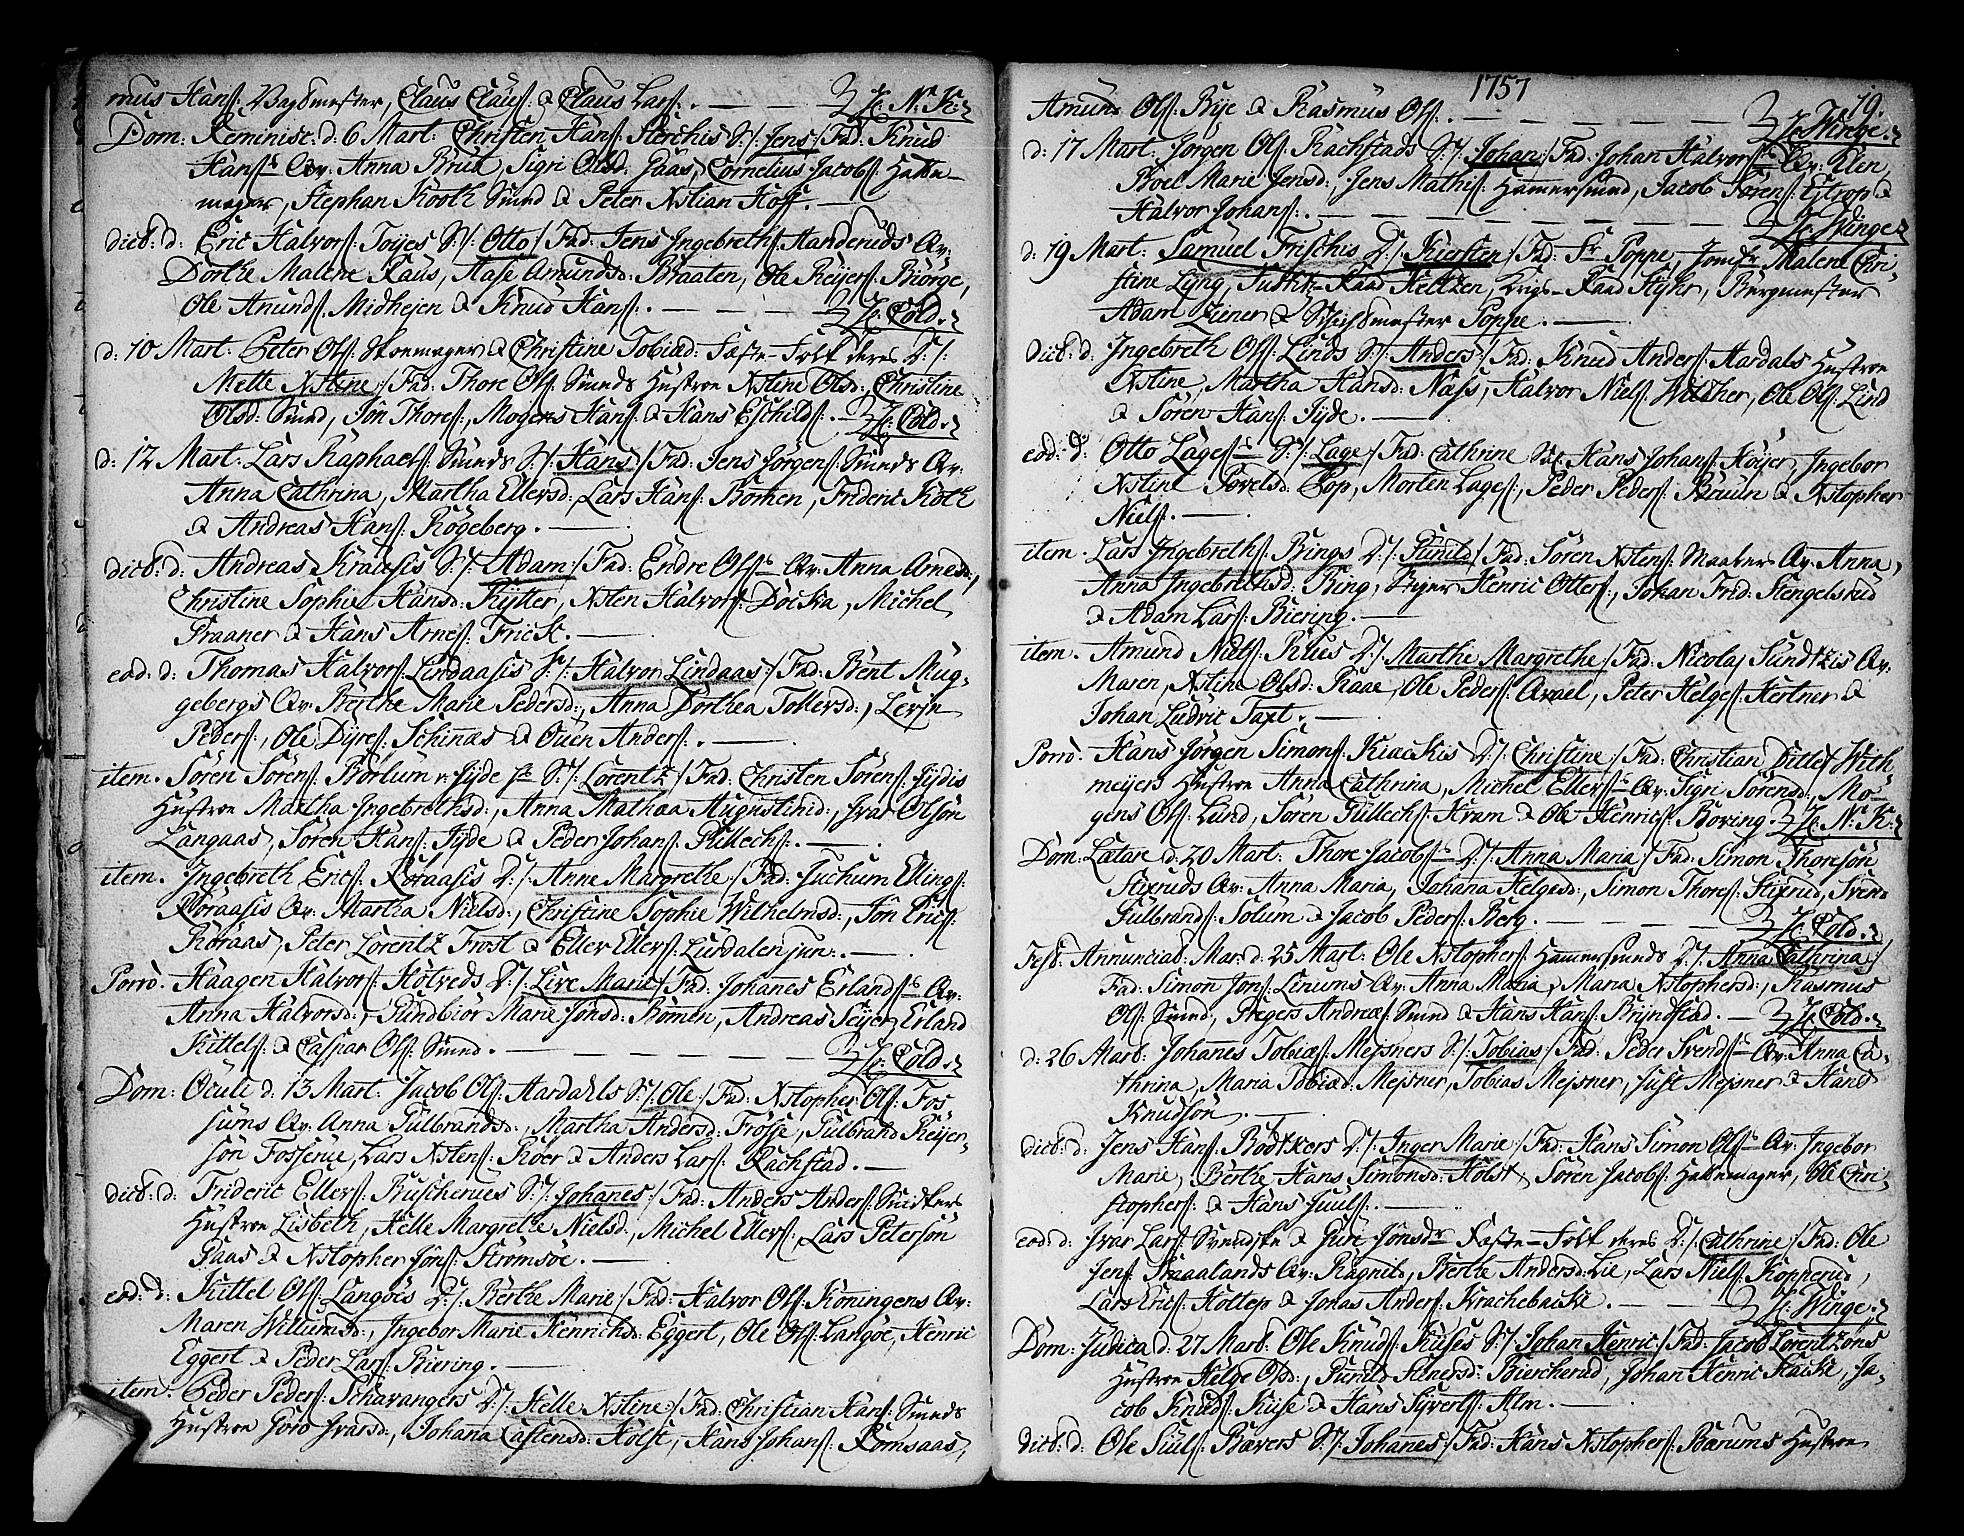 mus Hans: Bagsmester, Claus Claus: & Claus Lars:. — — H: N: K:
Dom: Reminisc: d: 6 Mart: Christen Hans: Sterchis S:/: Jens:/ Fad: Knud
Hans: Qv: Anna Bruk, Sigri Olsd: Saas, Cornelius Jacobs: Hatte-
mager, Stephan Kooth Smed & Peter Nstian Hoff. —
dict: d: Eric Halvors: Toijes S:/: Otto:/ Fad: Jens Ingebreths: Handeruds Qv:
Dorthe Malene Raus, Aase Amundsd: Braaten, Ole Reijers: Biørge,
Ole Amunds: Midhejen & Knud Hans:. — — H: Cold.
d: 10 Mart: Peter Ols: Skoemager & Christine Tobiæd: Fæste-Folk deres D:/:
Mette Nstine:/ Fad: Thore Ols: Smeds Hustroe Nstine Olsd: Christine
Olsd: Smed, Jon Thores:, Mogens Hans: & Hans Eschilds:. — H: Cold.
d: 12 Mart: Lars Raphaels: Smeds S:/: Hans:/ Fad: Jens Jørgens: Smeds Qv:
Anna Cathrina, Martha Ellersd: Lars Hans: Borken, Frideric Koth
& Andreas Hans: Rogeberg. —
dict: d: Andreas Krausis S:/: Adam:/ Fad: Endre Ols: Qv: Anna Arnesd:,
Christine Sophie Hansd: Rytter, Nsten Halvors: Docka, Michel
Praaner & Hans Arnes: Frick. —
eod: d: Thomas Halvors: Lindaasis S:/: Halvor Lindaas:/ Fad: Bent Mug-
gebergs Qv: Berthe Marie Pedersd:, Anna Dorthea Tollersd:, Levin
Peders:, Ole Dyres: Schinas & Ouen Anders:. —
item. Søren Sørens: Børlum v: Fyde S:/: Lorentz:/ Fad: Christen Sørens: Fydis
Hustroe Martha Ingebrethsd:, Anna Mathæa Augustinid:, Ivar Olsøn
Langaas, Søren Hans: Fyde & Peder Johans: Killech:. —
item. Ingebreth Erics: Koraasis D:/: Anne Margrethe:/ Fad: Juchum Ellings:
Koraasis Qv: Martha Nielsd:, Christine Sophie Wilhelmsd:, Jon Erics:
Koraas, Peter Lorentz Frost & Eller Ellers: Lurdalen jun:. —
Porro. Haagen Halvors: Hotveds D:/: Live Marie:/ Fad: Johanes Erlands: Qv:
Anna Halvorsd:, Gundbior Marie Jonsd: Bomen, Andreas Seijer, Erland
Kittels: & Caspar Ols: Smed. — — H: Cold.
Dom: Oculi d: 13 Mart: Jacob Ols: Aardahls S:/: Ole:/ Fad: Nstopher Ols: Fos
sums Qv: Anna Gulbrandsd:, Martha Andersd: Trosje, Gulbrand Reijer-
søn Fosserue, Lars Nstens: Røer & Anders Lars: Rachstad. —
dict: d: Frideric Ellers: Buscherues S:/: Johanes:/ Fad: Anders Anders: Snidkers
Hustroe Lisbeth, Helle Margrethe Nielsd:, Michel Ellers:, Lars Petersøn
Paas & Nstopher Jons: Stromsøe. —
eod: d: Kittel Ols: Langøes D:/: Berthe Marie:/ Fad: Halvor Ols: Koningens Qv:
Maren Willumsd:, Ingebor Marie Henrichsd: Eggert, Ole Ols: Langøe, Henric
Eggert & Peder Lars: Biering. —
item. Peder Peders: Schavangers D:/: Helle Nstine:/ Fad: Christian Hans: Smeds
Hustroe Goro Ivarsd:, Johana Castensd: Holst, Hans Johans: Komsaas,
1757
19.
Amund Ols: Bije & Rasmus Ols:. — — H: Winge.
d: 17 Mart: Jørgen Ols: Rachstads S:/: Johan:/ Fad: Johan Halvors: Qv: Elen,
Boel Marie Jensd:, Jens Maths: Hammersmed, Jacob Sørens: Estrop &
Halvor Johans:. — — H: Winge.
d: 19 Mart: Samuel Frischis D:/: Kiersten:/ Fad: Fr Poppe, Jomfr Malene Chri-
stine Lyng, Justitz-Raad Heltzen, Krigs-Raad Stijhr, Bergmester
Adam Ziener & Schichtmester Poppe. —
dict: d: Ingebreth Ols: Linds S:/: Anders:/ Fad: Knud Anders: Aardals Hustroe
Nstine, Martha Hansd: Næss, Halvor Niels: Wildher, Ole Ols: Lind
& Søren Hans: Fyde. —
eod: d: Otto Lages: S:/: Lage:/ Fad: Cathrine Sal: Hans Johans: Høijer, Ingebor
Nstine Povelsd: Pop, Morten Lages:, Peder Peders: Bruun & Nstopher
Niels:. —
item. Lars Ingebreths: Brings D:/: Gunild:/ Fad: Søren Nstens: Maalers Qv: Anna,
Anna Ingebrethsd: Bing, Henric Otters:, Johan Frid: Stengelsrud
& Adam Lars: Biering. —
item. Amund Niels: Rues D:/: Marthe Margrethe:/ Fad: Nicolaj Sundtzis Qv:
Maren, Nstine Olsd: Raae, Ole Peders: Qvael, Peter Helges: Hertner &
Johan Ludvic Taxt. —
Porro. Hans Jørgen Simons: Kiackis D:/: Christine:/ Fad: Christian Ditlef With
meijers Hustroe Anna Cathrina, Michel Ellers: Qv: Sigri Sørensd:, Mo-
gens Ols: Lund, Søren Gullechs: Kram & Ole Henrics: Boring. H: N: K:
Dom: Lætare d: 20 Mart: Thore Jacobs: D:/: Anna Maria:/ Fad: Simon Thoresøn
Stixruds Qv: Anna Maria, Johana Helgesd:, Simon Thores: Stixrud, Svend
Gulbrands: Solum & Jacob Peders: Berg. — — H: Cold.
Fest: Annunciat: Mar: d: 25 Mart: Ole Nstophers: Hammersmeds D:/: Anna Cathrina:/
Fad: Simon Jons: Linums Qv: Anna Maria, Maria Nstophersd:, Rasmus
Ols: Smed, Gregers Andreæs: Smed & Hans Hans: Bryndstad. — H: Cold.
d: 26 Mart: Johanes Tobiæs: Mejsners S:/: Tobias:/ Fad: Peder Svends: Qv: Anna Ca-
thrina, Maria Tobiæd: Mejsner, Tobias Mejsner, Just Mejsner & Hans
Knudsøn. —
dict: d: Jens Hans: Bødtkers D:/: Inger Marie:/ Fad: Hans Simon Ols: Qv: Ingebor
Marie, Berthe Hans Simonsd: Holst, Søren Jacobs: Hattemager, Ole Chri-
stophers: & Hans Juuls:. —
eod: d: Ivar Lars: Svendske & Guri Jonsdr Fæste-Folk deres D:/: Cathrine:/ Fad: Ole
Jens: Aaalands Qv: Ragnild, Berthe Andersd: Lie, Lars Niels: Kopperud,
Lars Erics: Holtep & Jonas Anders: Krachebacke. — — H: Winge.
Dom: Judica d: 27 Mart: Ole Knuds: Kuses S:/: Johan Henric:/ Fad: Jacob Lorentzøns
Hustroe Helge Olsd:, Gunild Stenersd: Biercherud, Johan Henric Kacke, Ja-
cob Knuds: Kuse & Hans Syverts: Alm. —
dict: d: Ole Siuls: Bævers S:/: Johanes:/ Fad: Hans Nstophers: Bærums Hustroe